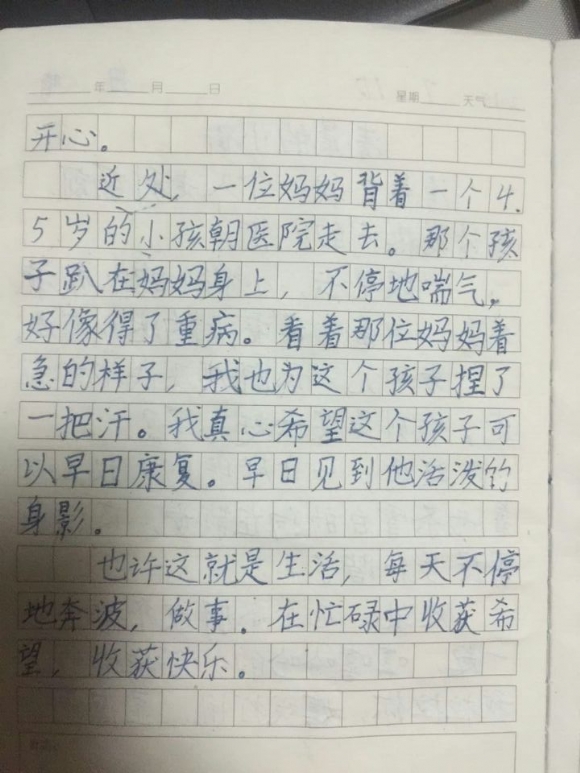 年 月 日 星期 天气
开心。
近处,一位妈妈背着一个4.
5岁的小孩朝医院走去。那个孩
子趴在妈妈身上,不停地喘气,
好像得了重病。看着那位妈妈着
急的样子,我也为这个孩子捏了
一把汗。我真心希望这个孩子可
以早日康复。早日见到他活泼的
身影。
也许这就是生活,每天不停
地奔波,做事。在忙碌中收获希
望,收获快乐。